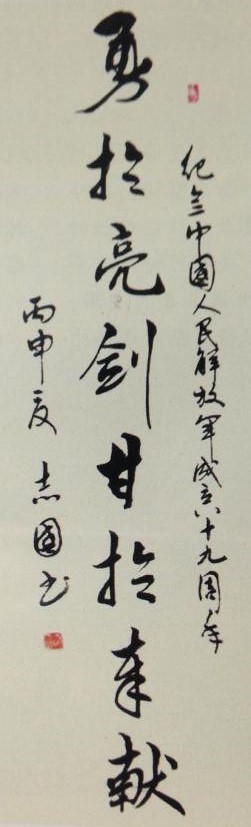 纪念中國人民解放军成立八十九周年
勇於亮剑甘於奉献
丙申夏志國书